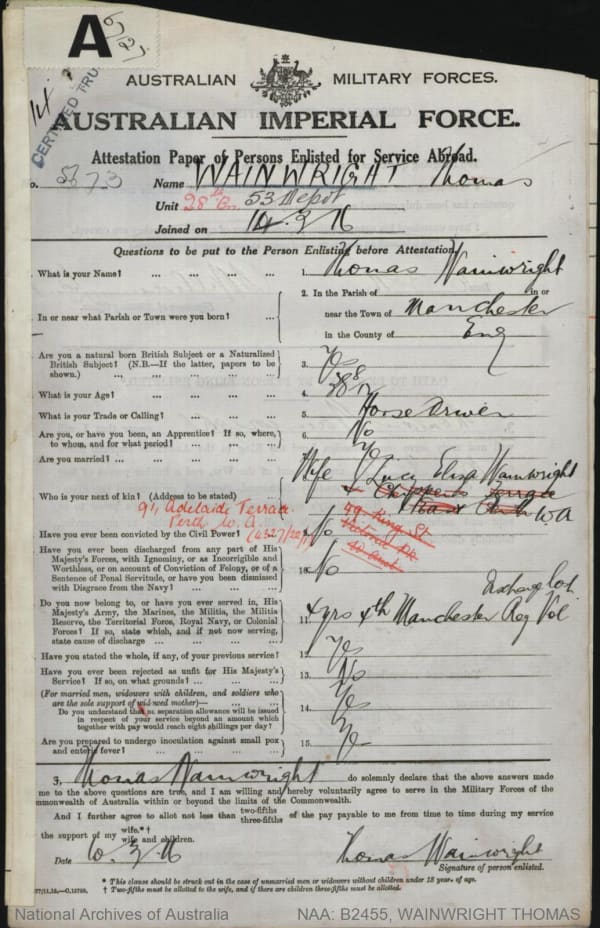 A
CERTIFIED TRU
AUSTRALIAN MILITARY FORCES.
AUSTRALIAN IMPERIAL FORCE.
Attestation Paper of Persons Enlisted for Service Abroad.
o. 5673 Name WAINWRIGHT Thomas
Unit 28th Bn 53 Depot
Joined on 14.3.16
Questions to be put to the Person Enlisting before Attestation.
What is your Name? ... ... ... ... 1. Thomas Wainwright
In or near what Parish or Town were you born? ... 2. In the Parish of in or
near the Town of Manchester
in the County of Eng
Are you a natural born British Subject or a Naturalized
British Subject? (N.B.—If the latter, papers to be
shown.) ... ... ... ... 3. Yes
What is your Age? ... ... ... ... 4. 38
What is your Trade or Calling? ... ... ... 5. Horse Driver
Are you, or have you been, an Apprentice? If so, where,
to whom, and for what period? ... ... ... 6. No
Are you married? ... ... ... ... Yes
Wife Lucy Eliza Wainwright
Who is your next of kin? (Address to be stated) ... Terrace
East Perth W.A
91, Adelaide Terrace
Perth W.A.
49 King St
Victoria Pk
Have you ever been convicted by the Civil Power? No
Have you ever been discharged from any part of His
Majesty's Forces, with Ignominy, or as Incorrigible and
Worthless, or on account of Conviction of Felony, or of a
Sentence of Penal Servitude, or have you been dismissed
with Disgrace from the Navy? 10. No
Do you now belong to, or have you ever served in, His
Majesty's Army, the Marines, the Militia, the Militia
Reserve, the Territorial Force, Royal Navy, or Colonial
Forces? If so, state which, and if not now serving,
state cause of discharge ... ... ... 11. 4 yrs 4th Manchester Reg Vol
Discharge Lost
Have you stated the whole, if any, of your previous service? 12. Yes
Have you ever been rejected as unfit for His Majesty's
Service? If so, on what grounds? ... ... ... 13. No
(For married men, widowers with children, and soldiers who
are the sole support of widowed mother)—
Do you understand that no separation allowance will be issued
in respect of your service beyond an amount which
together with pay would reach eight shillings per day? 14. Yes
Are you prepared to undergo inoculation against small pox
and enteric fever? ... ... ... ... 15. Yes
3, Thomas Wainwright do solemnly declare that the above answers made
me to the above questions are true, and I am willing and hereby voluntarily agree to serve in the Military Forces of the
mmonwealth of Australia within or beyond the limits of the Commonwealth.
And I further agree to allot not less than two-fifths three-fifths of the pay payable to me from time to time during my service
the support of my wife.*† wife and children.
Date 10.3.16 Thomas Wainwright
Signature of person enlisted.
* This clause should be struck out in the case of unmarried men or widowers without children under 18 years of age.
† Two-fifths must be allotted to the wife, and if there are children three-fifths must be allotted.
National Archives of Australia NAA: B2455, WAINWRIGHT THOMAS